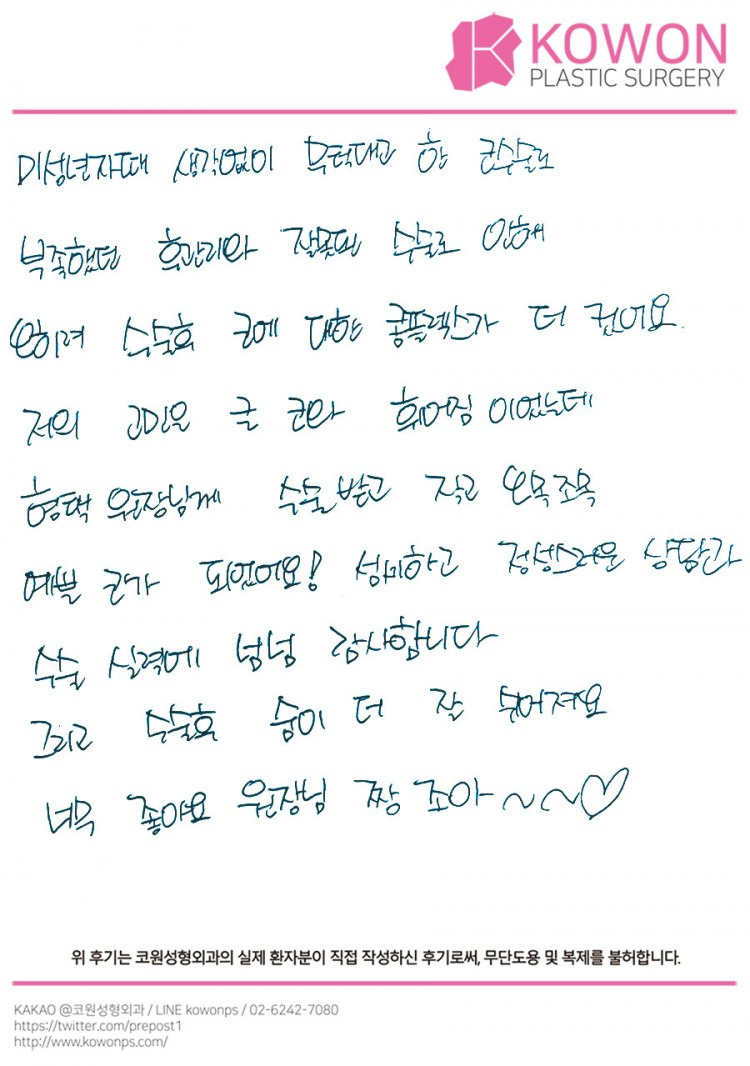 KOWON
PLASTIC SURGERY
미성년자때 생각없이 무턱대고 한 코수술로
부족했던 후관리와 잘못된 수술로 인해
오히려 수술후 코에 대한 콤플렉스가 더 컸어요.
저의 고민은 큰 코와 휘어짐 이었는데
형택 원장님께 수술받고 작고 오목조목
예쁜 코가 되었어요! 섬세하고 정성스러운 상담과
수술 실력에 넘넘 감사합니다
그리고 수술후 숨이 더 잘 쉬어져요
너무 좋아요 원장님 짱 조아~~♡
위 후기는 코원성형외과의 실제 환자분이 직접 작성하신 후기로써, 무단도용 및 복제를 불허합니다.
KAKAO @코원성형외과 / LINE kowonps / 02-6242-7080
https://twitter.com/prepost1
http://www.kowonps.com/